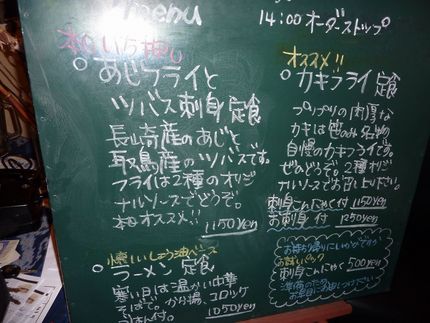 menu
14:00 オーダーストップ
本日いち押し
あじフライと
ツバス刺身定食
長崎産のあじと、
鳥取産のツバスです。
フライは2種のオリジ
ナルソースでどうぞ。
本日オススメ!!
1150yen
オススメ!!
カキフライ定食
プリプリの肉厚な
カキは当のみ名物
自慢のカキフライです。
ぜひどうぞ。2種オリジ
ナルソースでお召し上り下さい。
刺身こんにゃく付 1150yen
お刺身付 1250yen
懐しいしょう油ベース
ラーメン定食
寒い日は温かい中華
そばで。から揚、コロッケ
ごはん付。
1050yen
お持ち帰りにいかがですか
お試しパック
刺身こんにゃく 500yen